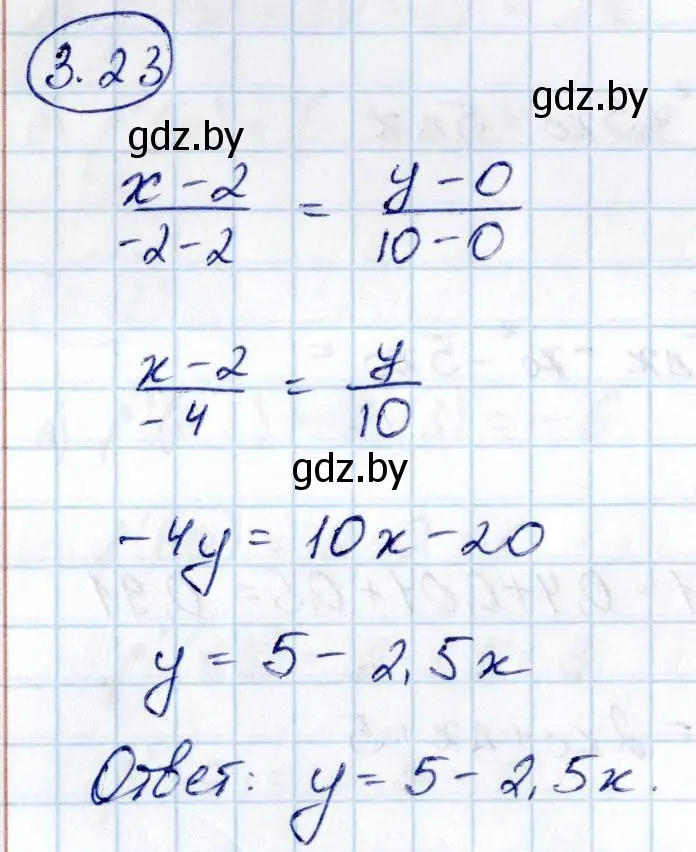 3.23
gdz.by
gdz.by
x - 2 / -2 - 2 = y - 0 / 10 - 0
x - 2 / -4 = y / 10
gdz.by
-4y = 10x - 20
y = 5 - 2,5x
Ответ: y = 5 - 2,5x.